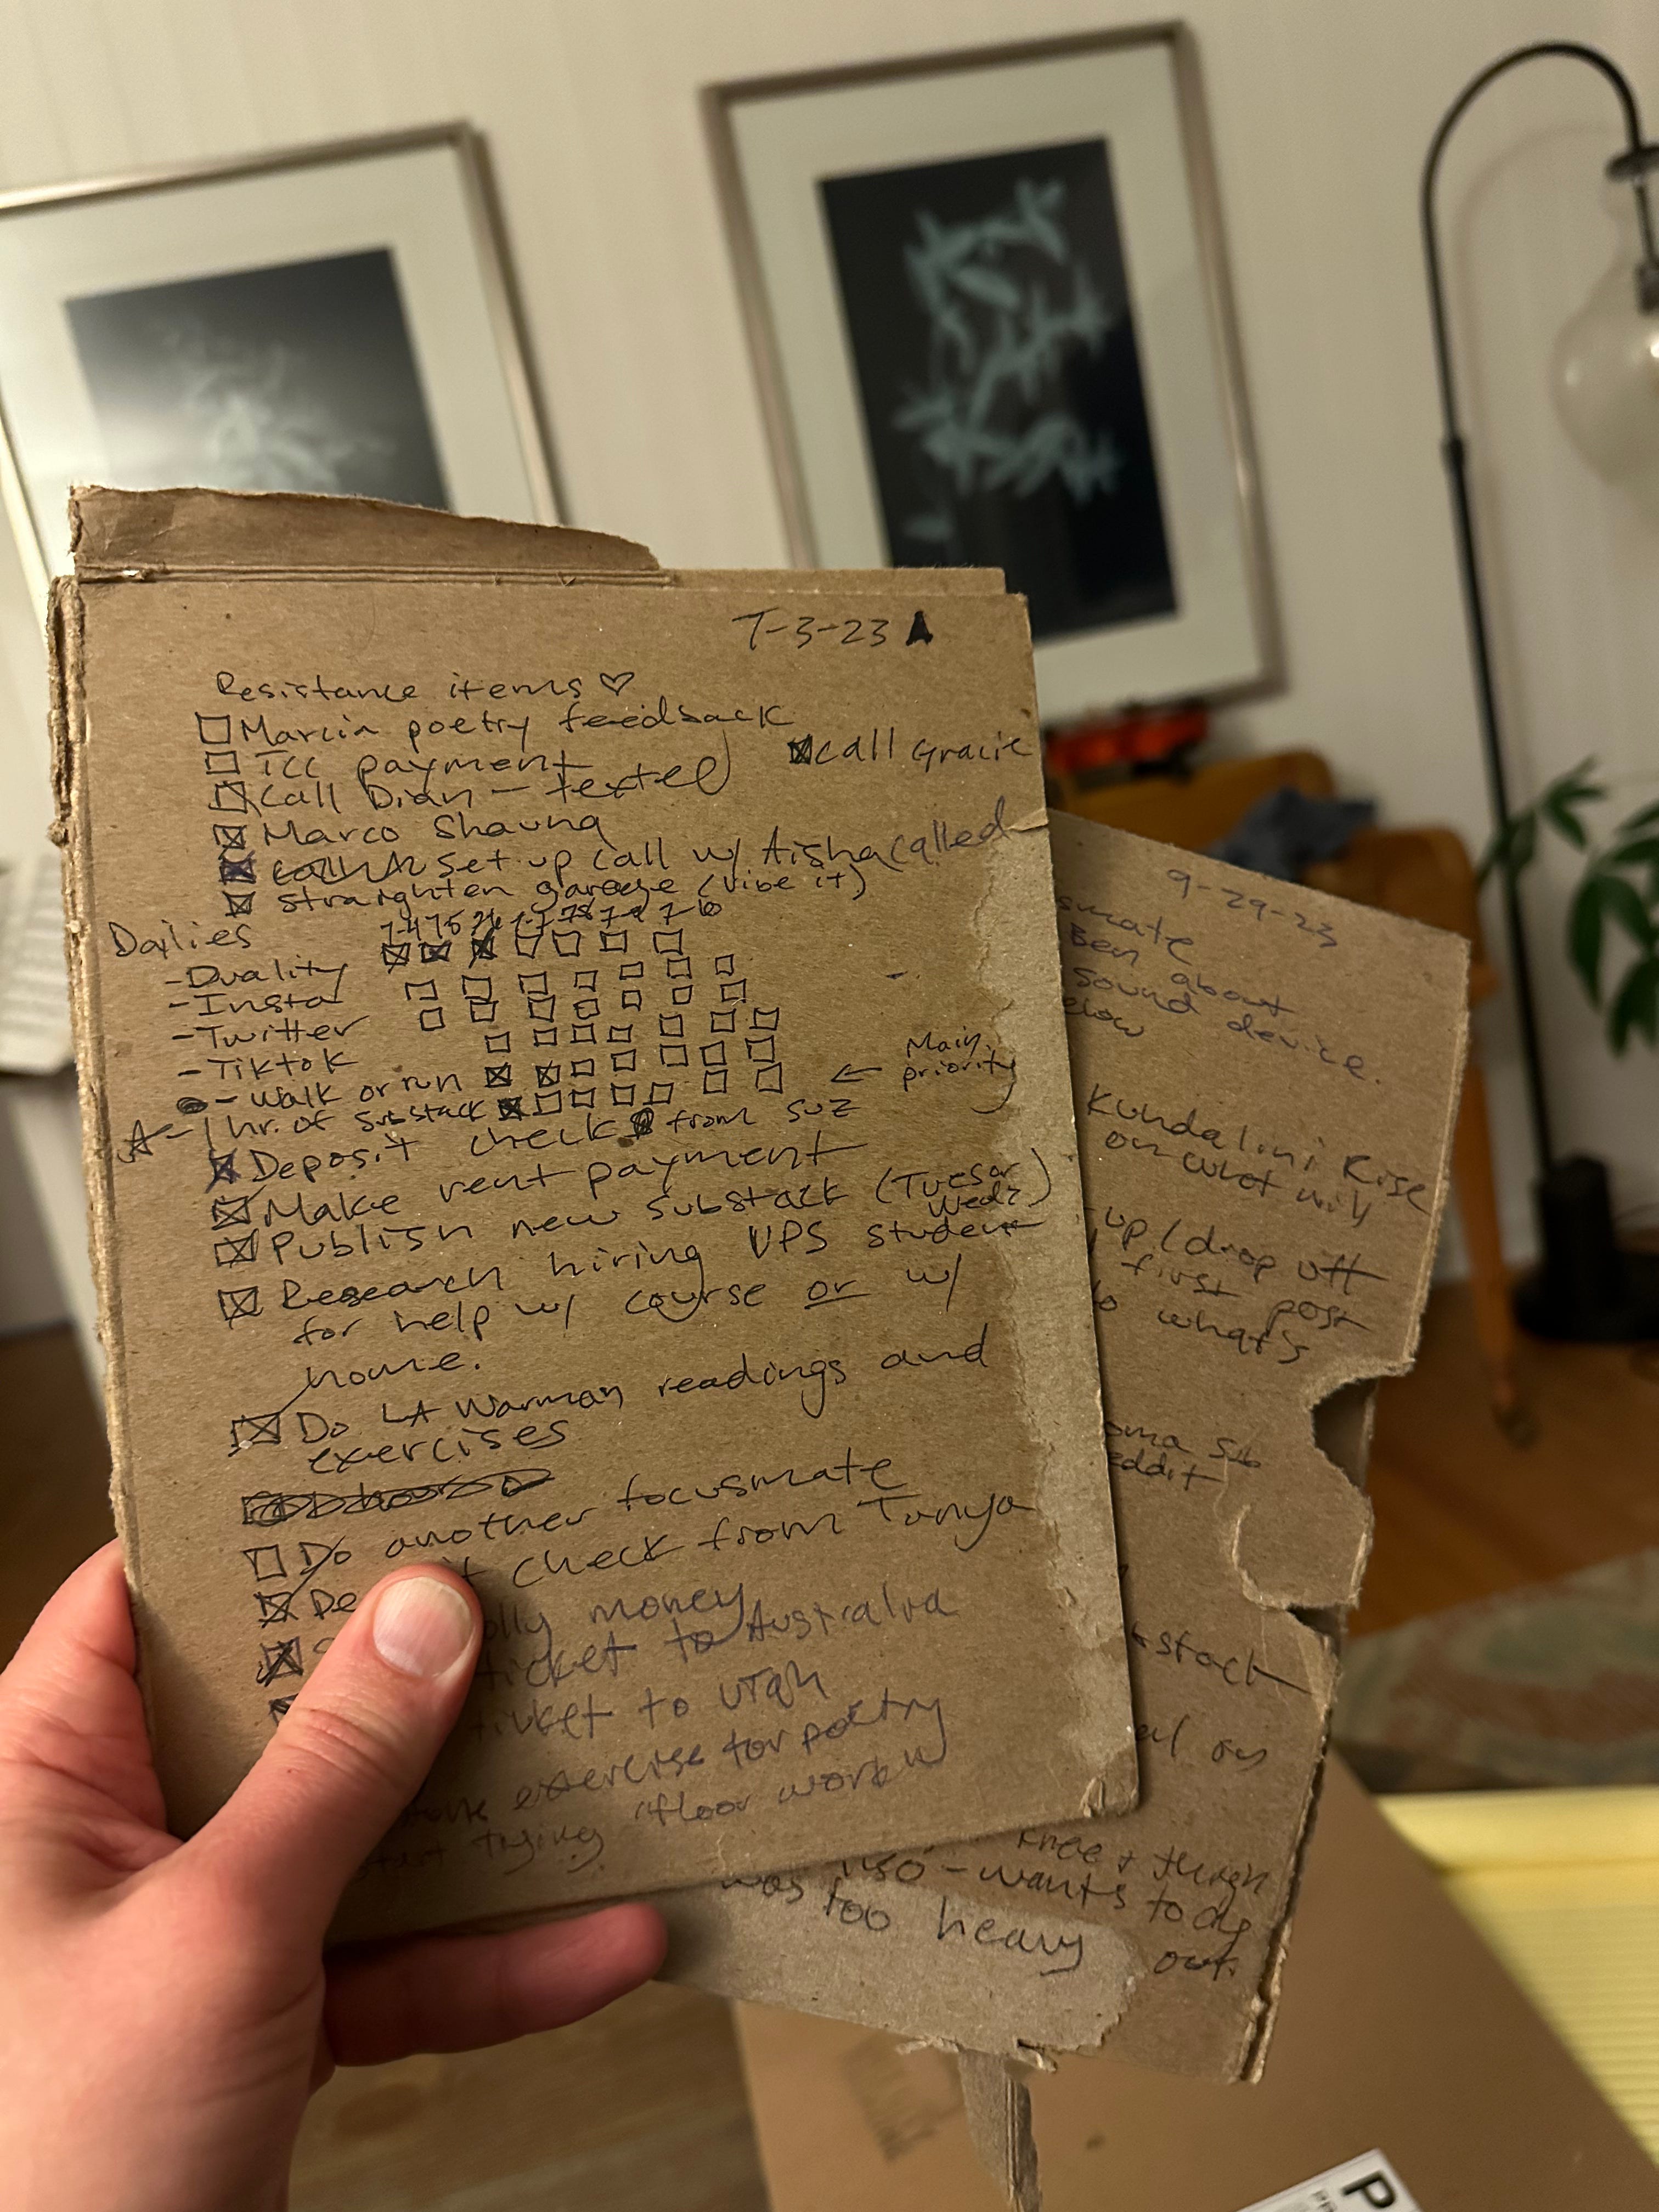 7-3-23
Resistance items ♡
☐ Marcia poetry feedback
☐ TCC payment
☒ Call Dian - texted
☒ Call Gracie
☒ Marco Shauna
☒ Set up call w/ Aisha called
☒ Straighten garage (vibe it)
Dailies
7-4 7-5 7-6 7-7 7-8 7-9 7-10
- Duality ☒ ☒ ☒ ☐ ☐ ☐ ☐
- Insta ☐ ☐ ☐ ☐ ☐ ☐ ☐
- Twitter ☐ ☐ ☐ ☐ ☐ ☐ ☐
- Tiktok ☐ ☐ ☐ ☐ ☐ ☐ ☐
- Walk or run ☒ ☒ ☐ ☐ ☐ ☐ ☐
- 1 hr. of Substack ☒ ☐ ☐ ☐ ☐ ☐ ☐ ← Main priority
☒ Deposit check from Suz
☒ Make rent payment
☒ Publish new substack (Tues or
Wed?)
☒ Research hiring VPS student
for help w/ course or w/
home.
☒ Do LA Warman readings and
exercises
☐ Do another focusmate
☒ De check from Tanya
☒ money
ticket to Australia
ticket to Utah
exercise for poetry
start trying "floor work"
9-29-23
Ben about
sound device.
Kundalini Rise
on what will
up (drop off
first post
what's
sub
stack
on
Knee + thigh
was - wants to dip
too heavy out.
P